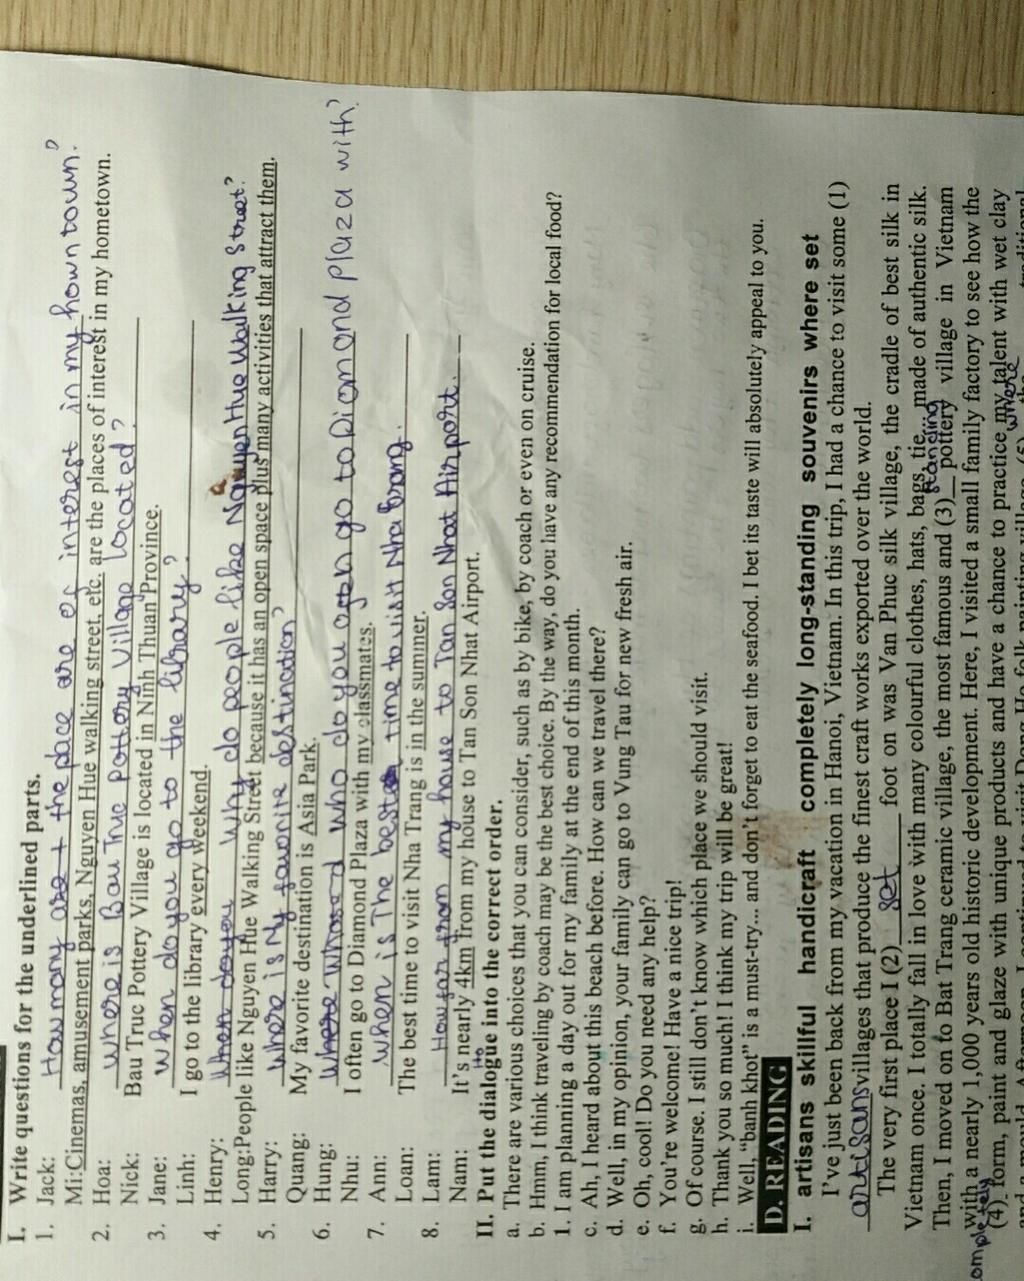 I. Write questions for the underlined parts.
1. Jack: How many are + the place are of interest in my hown town?
Mi:Cinemas, amusement parks, Nguyen Hue walking street, etc. are the places of interest in my hometown.
2. Hoa: where is Bau Truc Pottery Village located?
Nick: Bau Truc Pottery Village is located in Ninh Thuan Province.
3. Jane: when do you go to the library?
Linh: I go to the library every weekend.
4. Henry: When do you why do people like Nguyen Hue Walking Street?
Long:People like Nguyen Hue Walking Street because it has an open space plus many activities that attract them.
5. Harry: where is My favorite destination?
Quang: My favorite destination is Asia Park.
6. Hung: who do you go to Diamond plaza with?
Nhu: I often go to Diamond Plaza with my classmates.
7. Ann: when is The best time to visit Nha trang.
Loan: The best time to visit Nha Trang is in the summer.
8. Lam: How far from my house to Tan Son Nhat Airport.
Nam: It's nearly 4km from my house to Tan Son Nhat Airport.
II. Put the dialogue into the correct order.
a. There are various choices that you can consider, such as by bike, by coach or even on cruise.
b. Hmm, I think traveling by coach may be the best choice. By the way, do you have any recommendation for local food?
1. I am planning a day out for my family at the end of this month.
c. Ah, I heard about this beach before. How can we travel there?
d. Well, in my opinion, your family can go to Vung Tau for new fresh air.
e. Oh, cool! Do you need any help?
f. You're welcome! Have a nice trip!
g. Of course. I still don't know which place we should visit.
h. Thank you so much! I think my trip will be great!
i. Well, "banh khot" is a must-try... and don't forget to eat the seafood. I bet its taste will absolutely appeal to you.
D. READING
I. artisans skilful handicraft completely long-standing souvenirs where set
I've just been back from my vacation in Hanoi, Vietnam. In this trip, I had a chance to visit some (1)
artisans villages that produce the finest craft works exported over the world.
The very first place I (2) set foot on was Van Phuc silk village, the cradle of best silk in
Vietnam once. I totally fall in love with many colourful clothes, hats, bags, tie... made of authentic silk.
Then, I moved on to Bat Trang ceramic village, the most famous and (3) standing pottery village in Vietnam
with a nearly 1,000 years old historic development. Here, I visited a small family factory to see how the
(4) form, paint and glaze with unique products and have a chance to practice my talent with wet clay